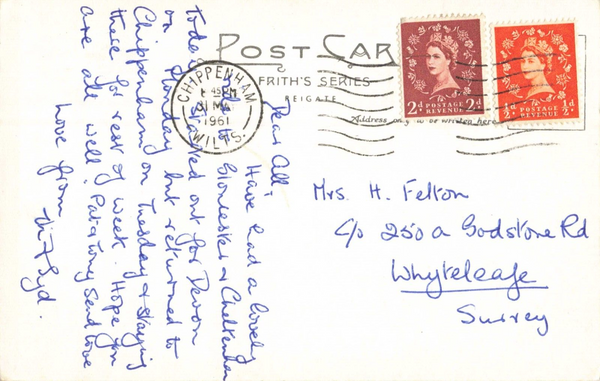 POST CAR
FRITH'S SERIES
REIGATE
Address only to be written here
CHIPPENHAM
45 PM
31 MA
1961
WILTS.
2d POSTAGE REVENUE 2d
½d POSTAGE REVENUE ½d
Dear All,
Have had a lovely
to Gloucester & Cheltenham
today. Started out for Devon
on Monday but returned to
Chippenham on Tuesday & staying
there for rest of week. Hope you
are all well. Pat & Tony send love
Love from
Vi & Syd.
Mrs. H. Felton
C/o 250a Godstone Rd
Whyteleafe
Surrey